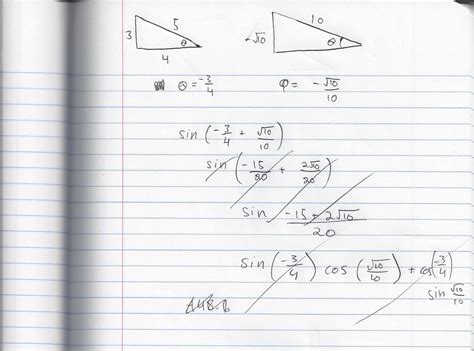 5
3
θ
4
10
-√10
θ
θ = -3/4
φ = -√10/10
sin (-3/4 + √10/10)
sin (-15/20 + 2√10/20)
sin -15 + 2√10/20
sin (-3/4) cos (√10/10) + cos(-3/4)
sin √10/10